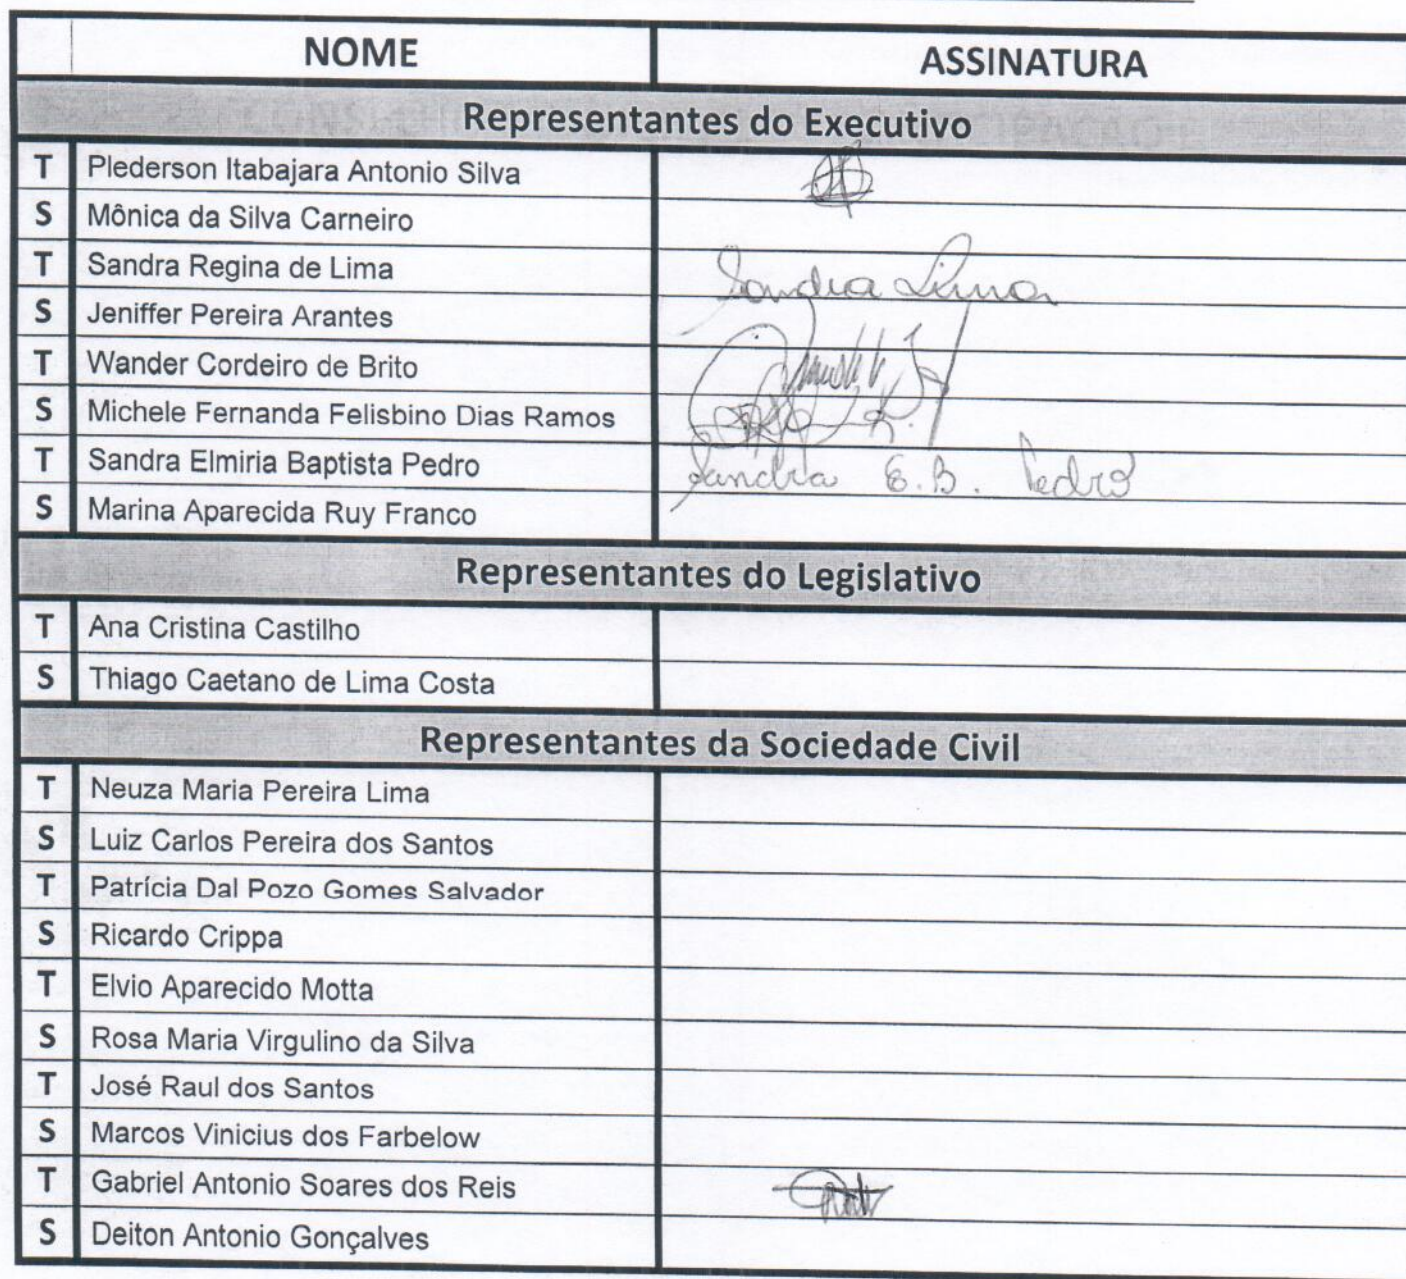 NOME ASSINATURA
Representantes do Executivo
T Plederson Itabajara Antonio Silva
S Mônica da Silva Carneiro
T Sandra Regina de Lima Sandra Lima
S Jeniffer Pereira Arantes
T Wander Cordeiro de Brito
S Michele Fernanda Felisbino Dias Ramos
T Sandra Elmiria Baptista Pedro Sandra E.B. Pedro
S Marina Aparecida Ruy Franco
Representantes do Legislativo
T Ana Cristina Castilho
S Thiago Caetano de Lima Costa
Representantes da Sociedade Civil
T Neuza Maria Pereira Lima
S Luiz Carlos Pereira dos Santos
T Patrícia Dal Pozo Gomes Salvador
S Ricardo Crippa
T Elvio Aparecido Motta
S Rosa Maria Virgulino da Silva
T José Raul dos Santos
S Marcos Vinicius dos Farbelow
T Gabriel Antonio Soares dos Reis
S Deiton Antonio Gonçalves